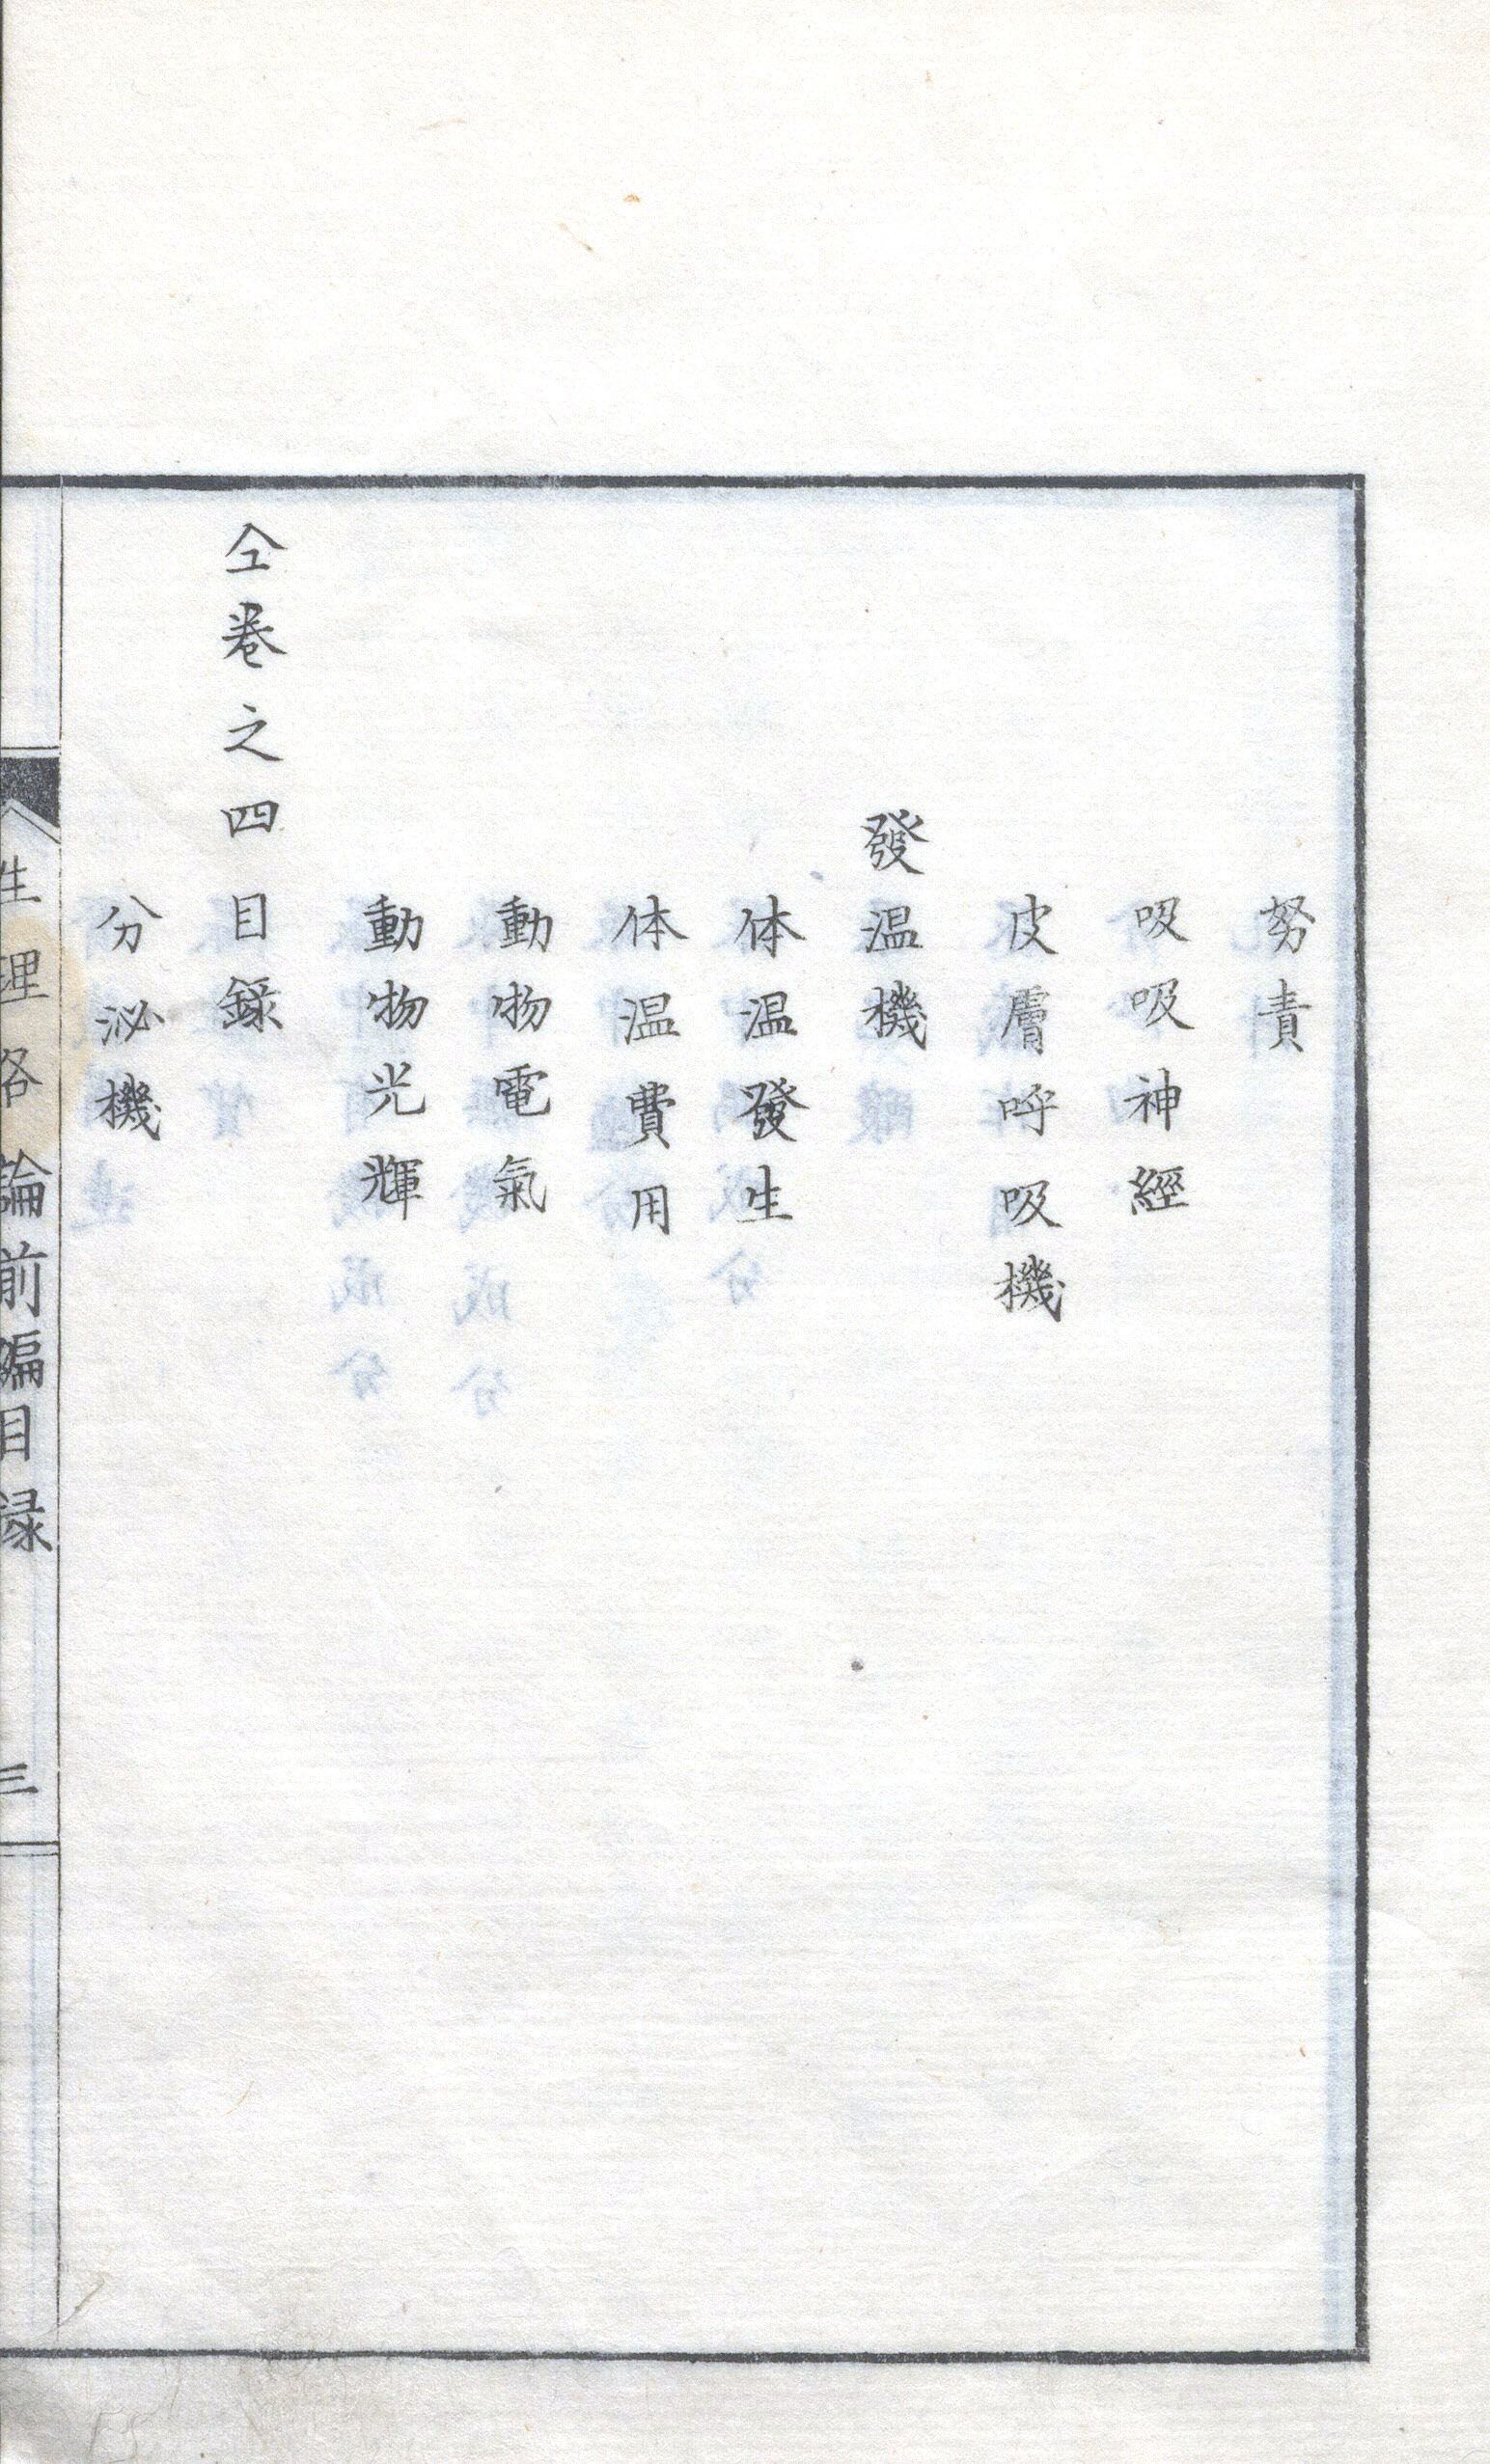 努責
吸吸神經
皮膚呼吸機
發温機
体温發生
体温費用
動物電氣
動物光輝
仝卷之四目錄
分泌機
生理各論前編目録
三